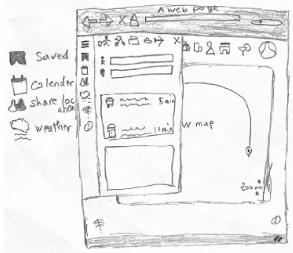 A web page
Saved
Calender
share loc
ation
weather
5 min
11 min
w map
Zoom